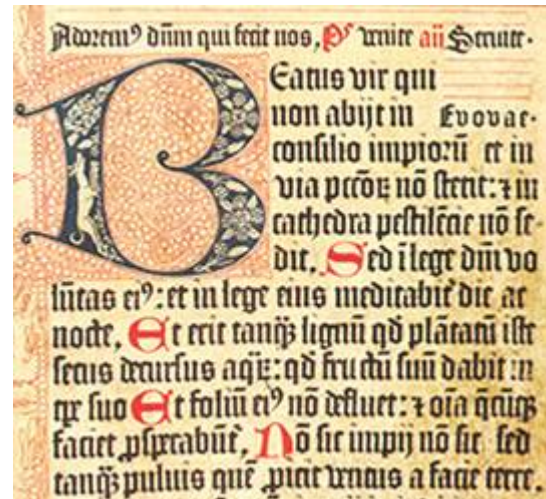 Adoremꝰ dn̄m qui fecit nos, Ps̄ venite añ Seruite.
Beatus vir qui
non abijt in Evovae.
consilio impiorū et in
via pctōꝝ nō stetit: ⁊ in
cathedra pestilēcie nō se-
dit, Sed ī lege dn̄i vo
lūtas eiꝰ: et in lege eius meditabit̄ die ac
nocte, Et erit tanqꝫ lignū qd̄ plātatū iste
secus decursus aqꝝ: qd̄ fructū suū dabit in
tꝑe suo Et foliū eiꝰ nō defluet: ⁊ oīa qc̄ūqꝫ
faciet ꝓsperabūt̄, Nō sic impij nō sic sed
tanqꝫ puluis quē ꝓicit ventus a facie terre.